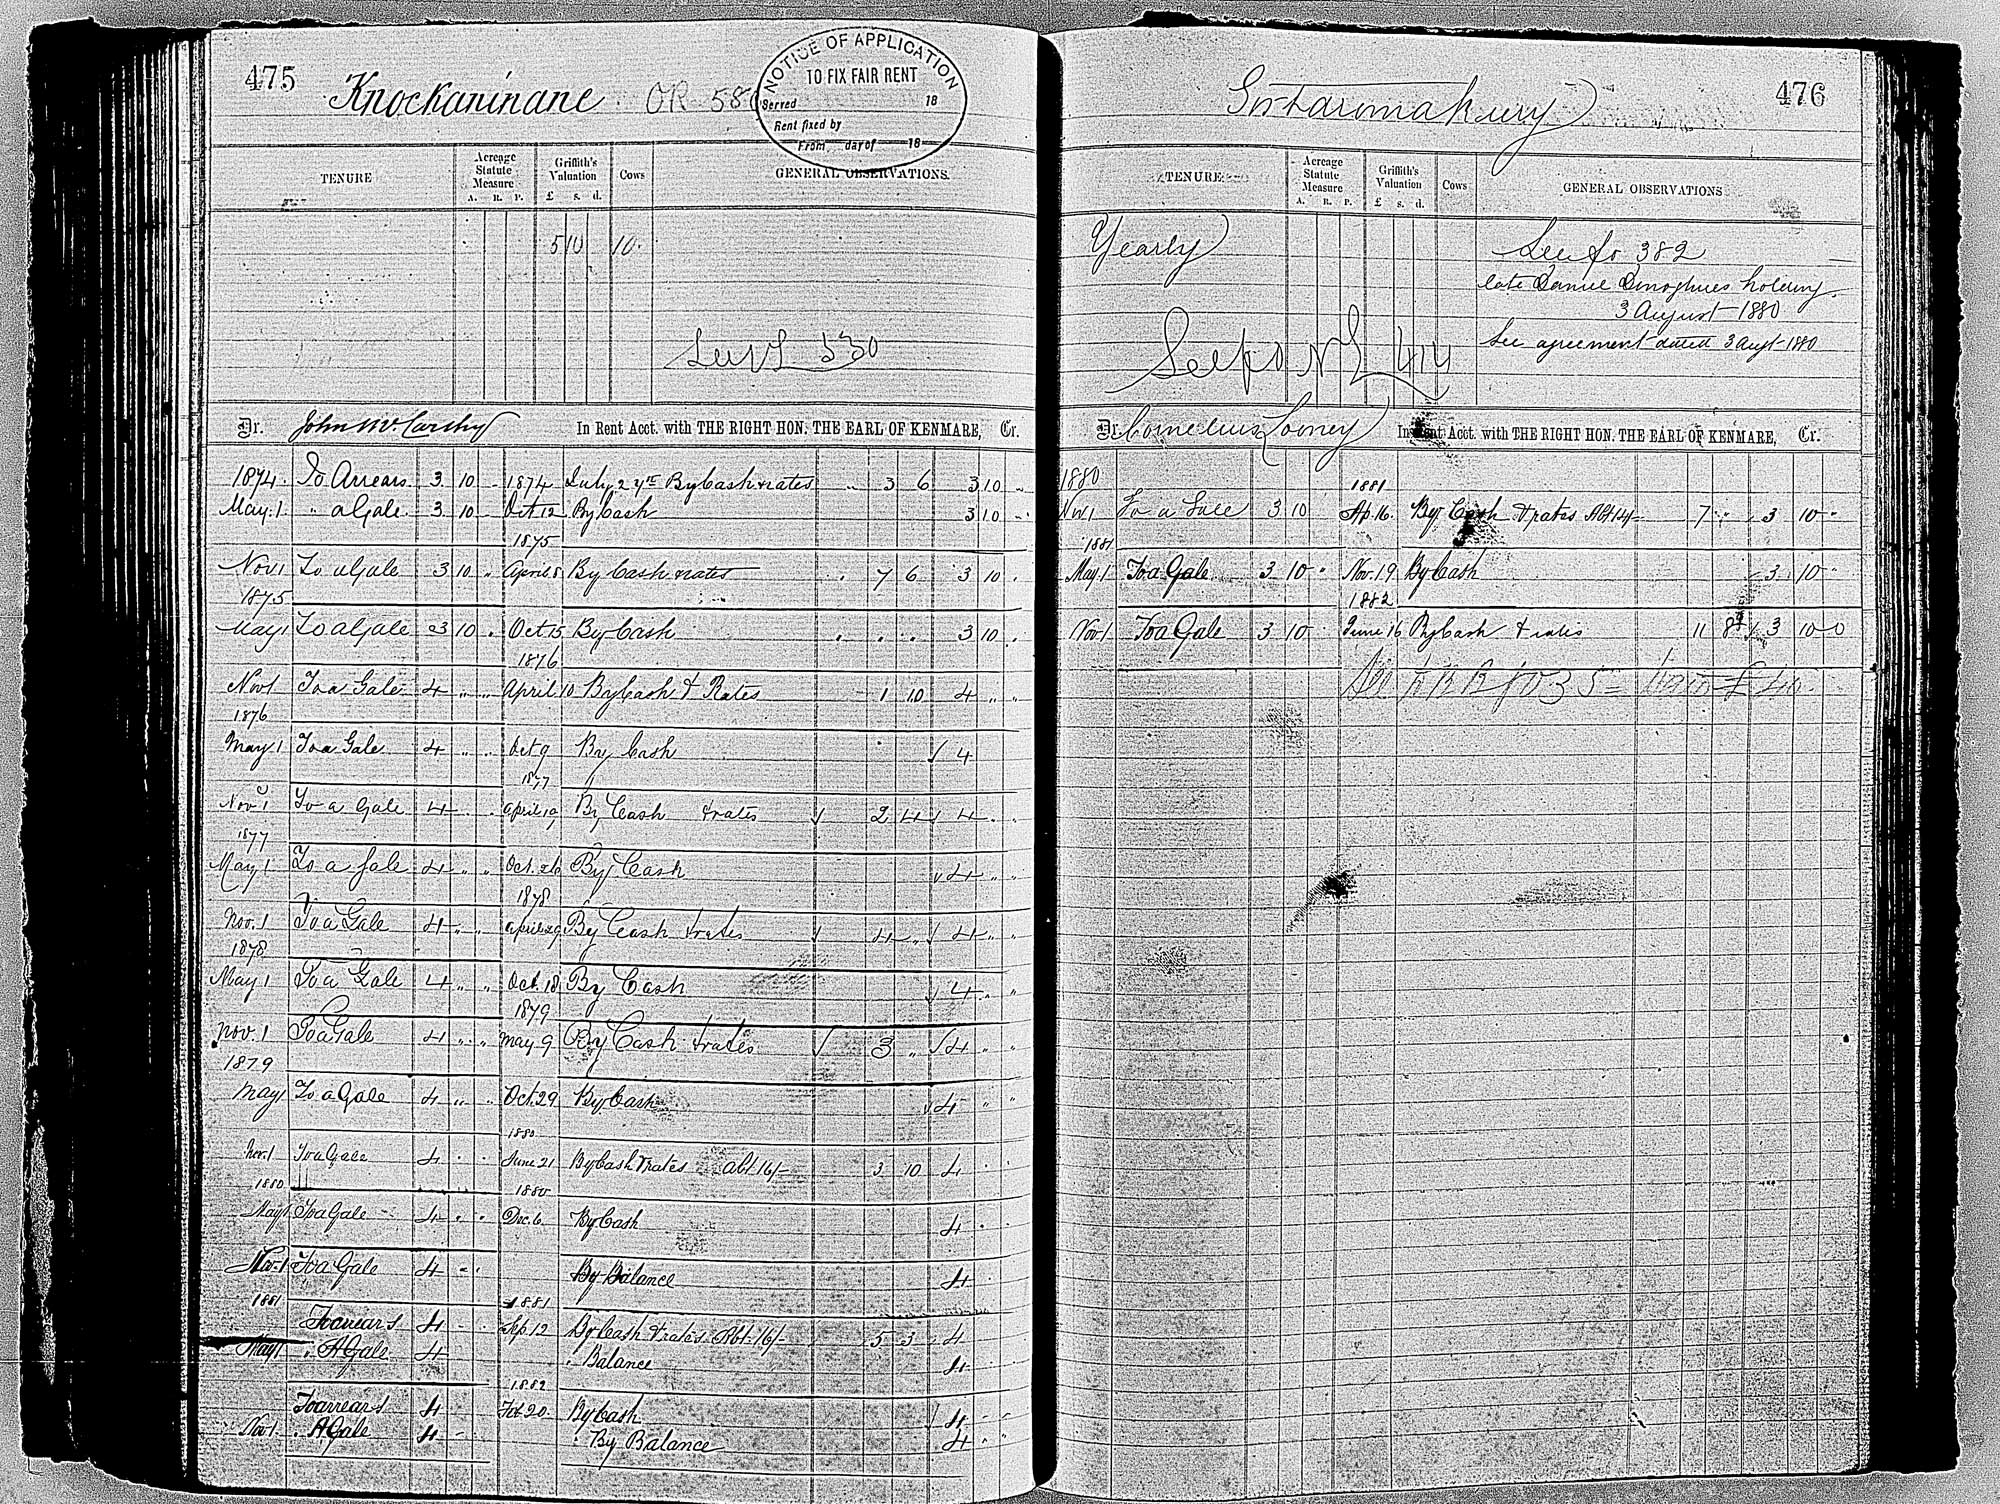 475
Knockaninane OR 58
NOTICE OF APPLICATION
TO FIX FAIR RENT
Served 18
Rent fixed by
From, day of 18
TENURE Acreage Statute Measure Griffith's Valuation Cows GENERAL OBSERVATIONS.
A. R. P. £ s. d.
5 10 10
530
Dr. John McCarthy In Rent Acct. with THE RIGHT HON. THE EARL OF KENMARE, Cr.
1874. To Arrears 3 10 " 1874 July 2 By Cash & rates " 3 6 3 10 "
May. 1 " a Gale 3 10 Oct 12 By Cash 3 10 "
1875
Nov 1 To a Gale 3 10 " April 8 By Cash & rates 7 6 3 10 "
1875
May 1 To a Gale 3 10 " Oct 15 By Cash " " " 3 10 "
1876
Nov 1 To a Gale 4 " " April 10 By Cash & Rates 1 10 4 " "
1876
May 1 To a Gale 4 " " Oct 9 By Cash 4
1877
Nov 1 To a Gale 4 " " April 19 By Cash & rates 2 4 4 " "
1877
May 1 To a Gale 4 " " Oct. 26 By Cash 4 " "
1878
Nov. 1 To a Gale 4 " " April 29 By Cash & rates 4 " 4 " "
1878
May 1 To a Gale 4 " " Oct. 18 By Cash 4 " "
1879
Nov. 1 To a Gale 4 " " May 9 By Cash & rates 3 " 4 " "
1879
May 1 To a Gale 4 " " Oct. 29 By Cash 4 " "
1880
Nov. 1 To a Gale 4 " " June 21 By Cash & rates Abt 16/- 3 10 4 " "
1880 1880
May 1 To a Gale 4 " " Dec. 6 By Cash 4 " "
Nov. 1 To a Gale 4 " " By Balance 4
1881 1881
To arrears 4 " Sep 12 By Cash & rates Abt. 16/- 5 3 4 "
May 1 " A Gale 4 " Balance 4 "
1882
To arrears 4 " Feb 20 By Cash 4 " "
Nov 1 " A Gale 4 " " By Balance 4 " "
476
TENURE Acreage Statute Measure Griffith's Valuation Cows GENERAL OBSERVATIONS
A. R. P. £ s. d.
Yearly See fo 382
late Daniel Donoghues holding
3 August 1880
See agreement dated 3 Augt 1880
See fo N L 414
Dr. Cornelius Looney In Rent Acct. with THE RIGHT HON. THE EARL OF KENMARE, Cr.
1880 1881
Nov 1 To a Gale 3 10 Ap. 16. By Cash & rates Abt 14/- 7 " 3 10 "
1881
May 1 To a Gale 3 10 " Nov. 19 By Cash 3 10 "
1882
Nov 1 To a Gale 3 10 June 16 By Cash & rates 11 8 3 10 0